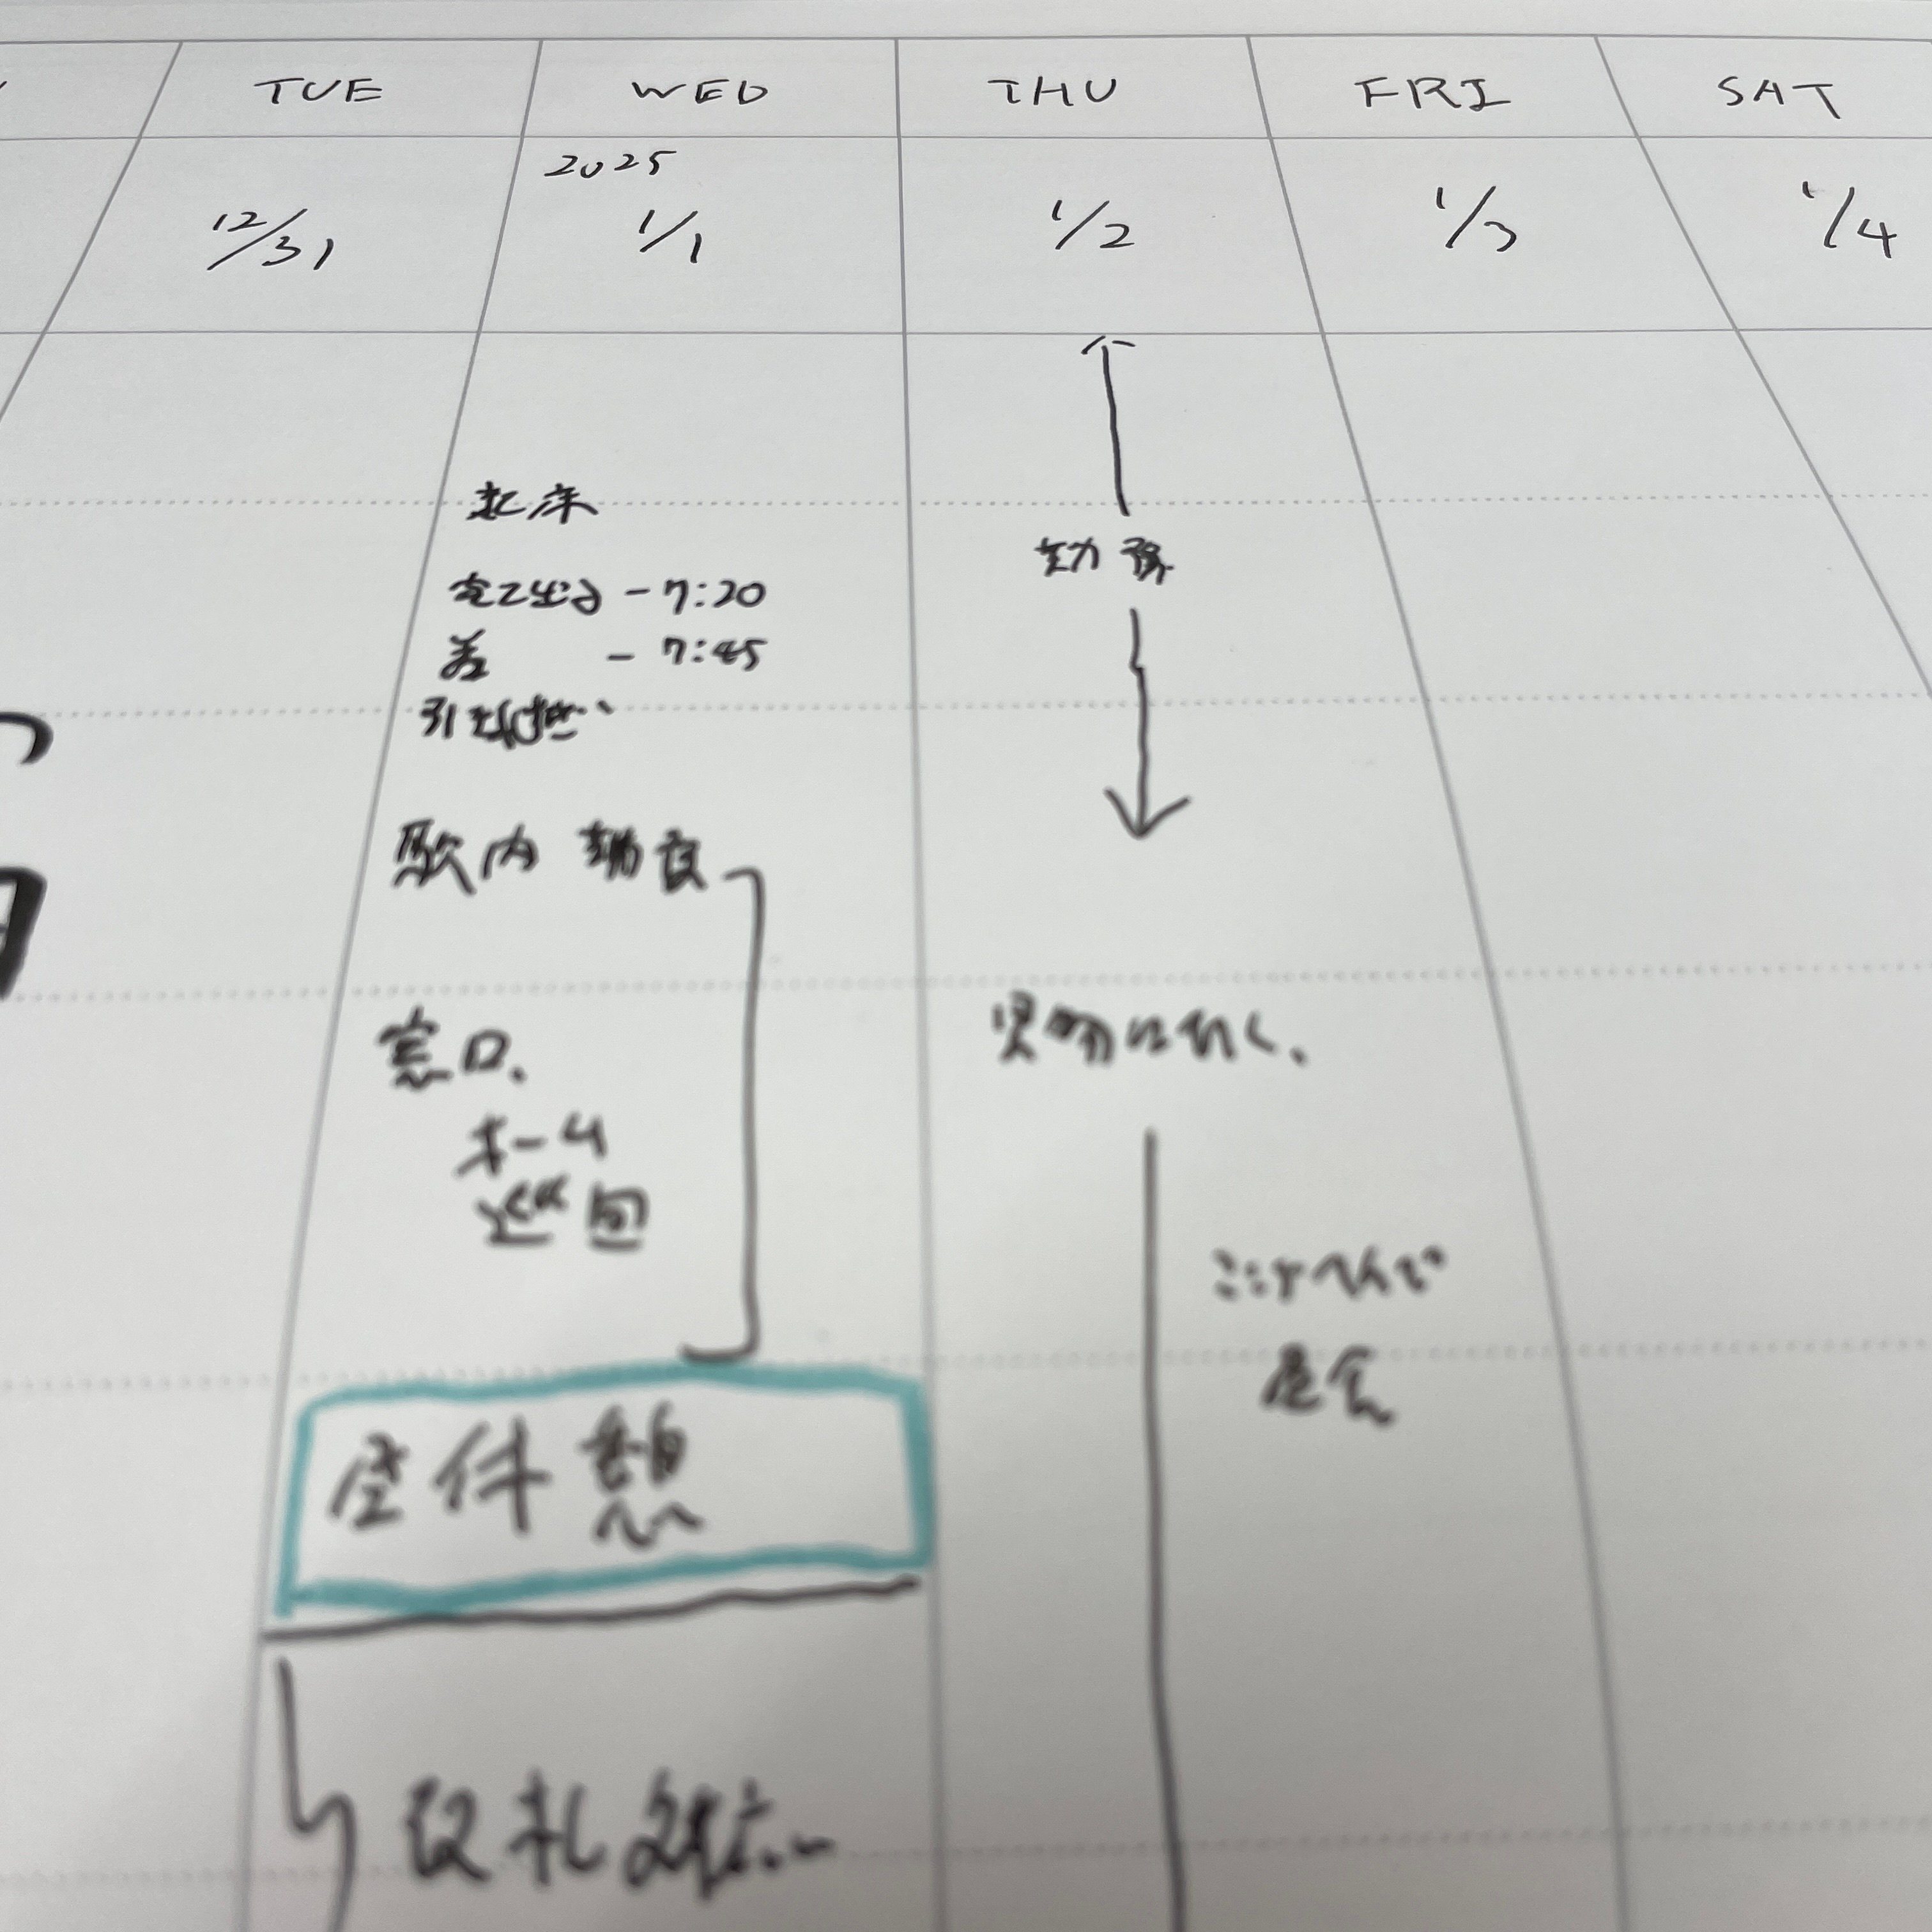 TUE WED THU FRI SAT
2025
12/31 1/1 1/2 1/3 1/4
起床
家を出る - 7:20
着 - 7:45
引き継ぎ
駅内
窓口、
ホーム
巡回
昼休憩
改札
勤務
買物に行く、
ここらへんで
昼食